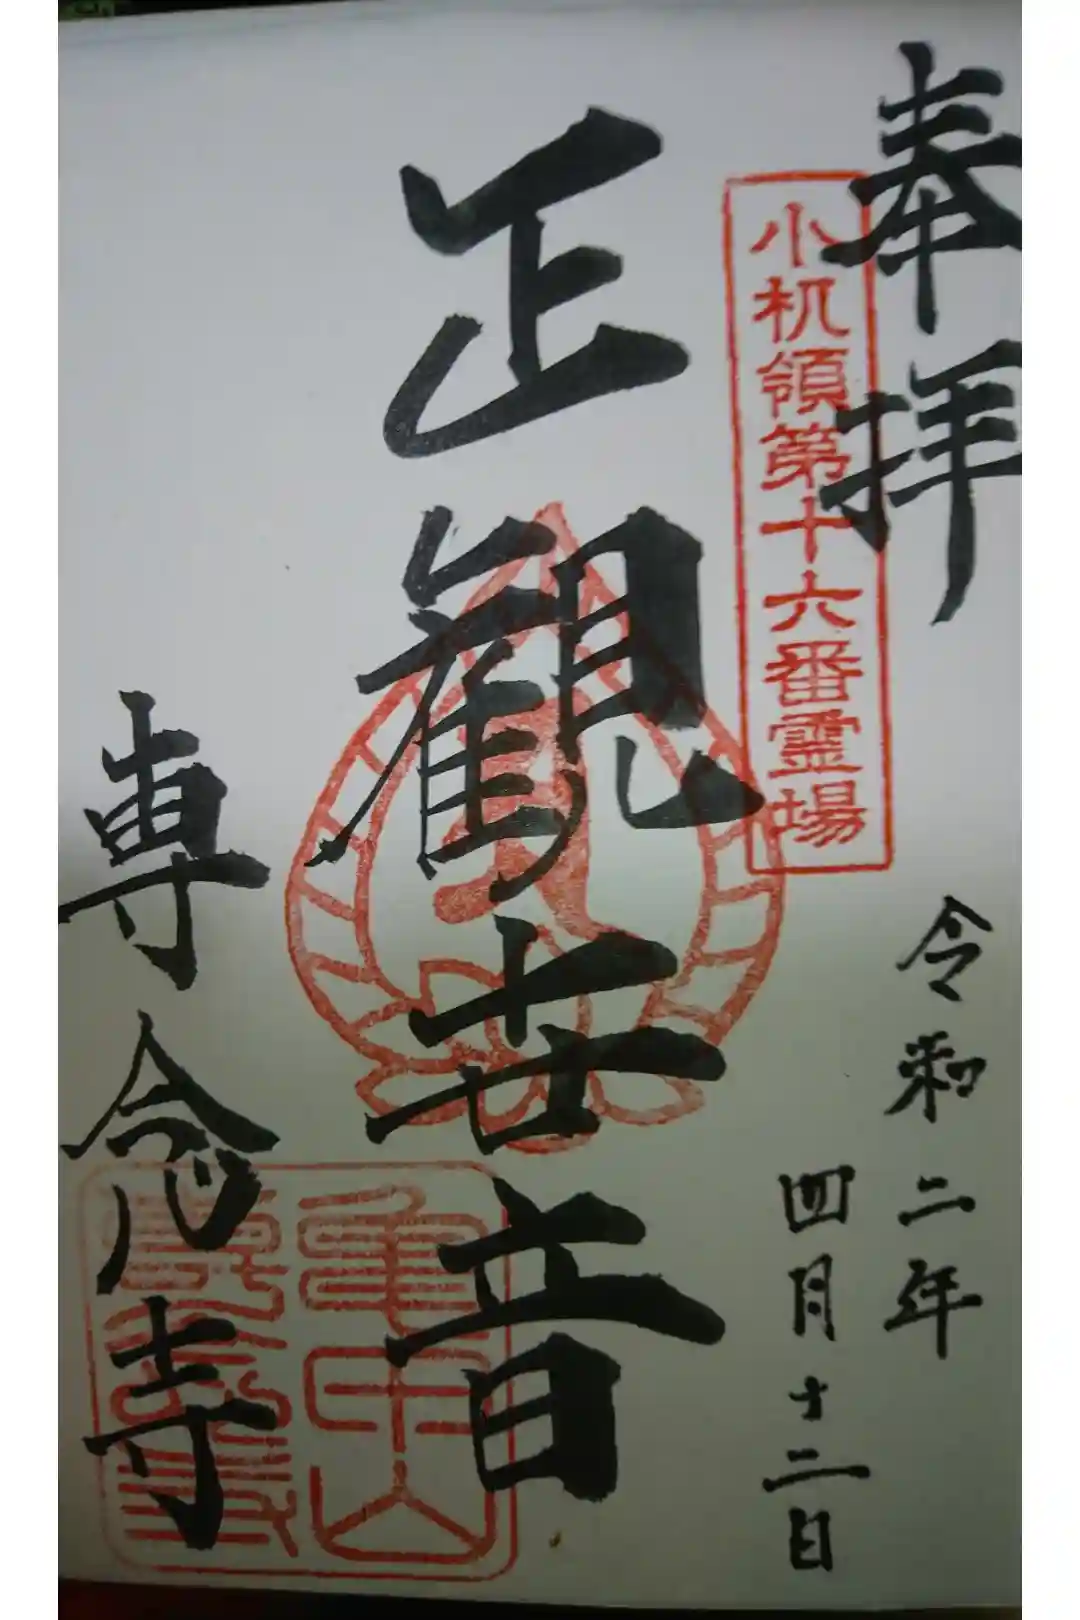 奉拝
小机領第十六番霊場
令和二年
四月十二日
正觀世音
専念寺